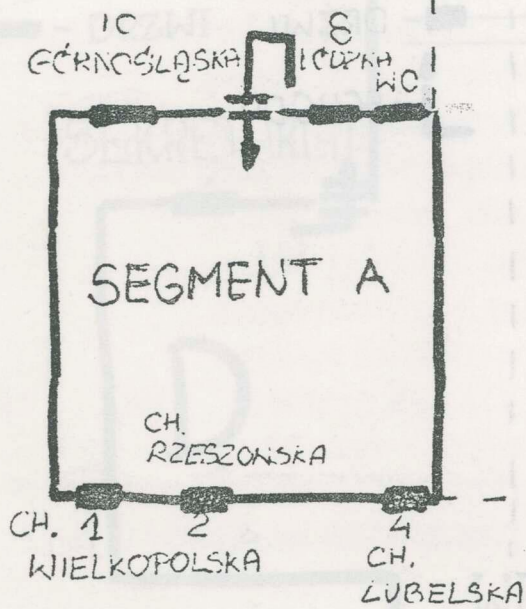 10
GÓRNOŚLĄSKA
8
ŁÓDZKA
WC
SEGMENT A
CH.
RZESZOWSKA
CH. 1 2 4
WIELKOPOLSKA
CH.
LUBELSKA